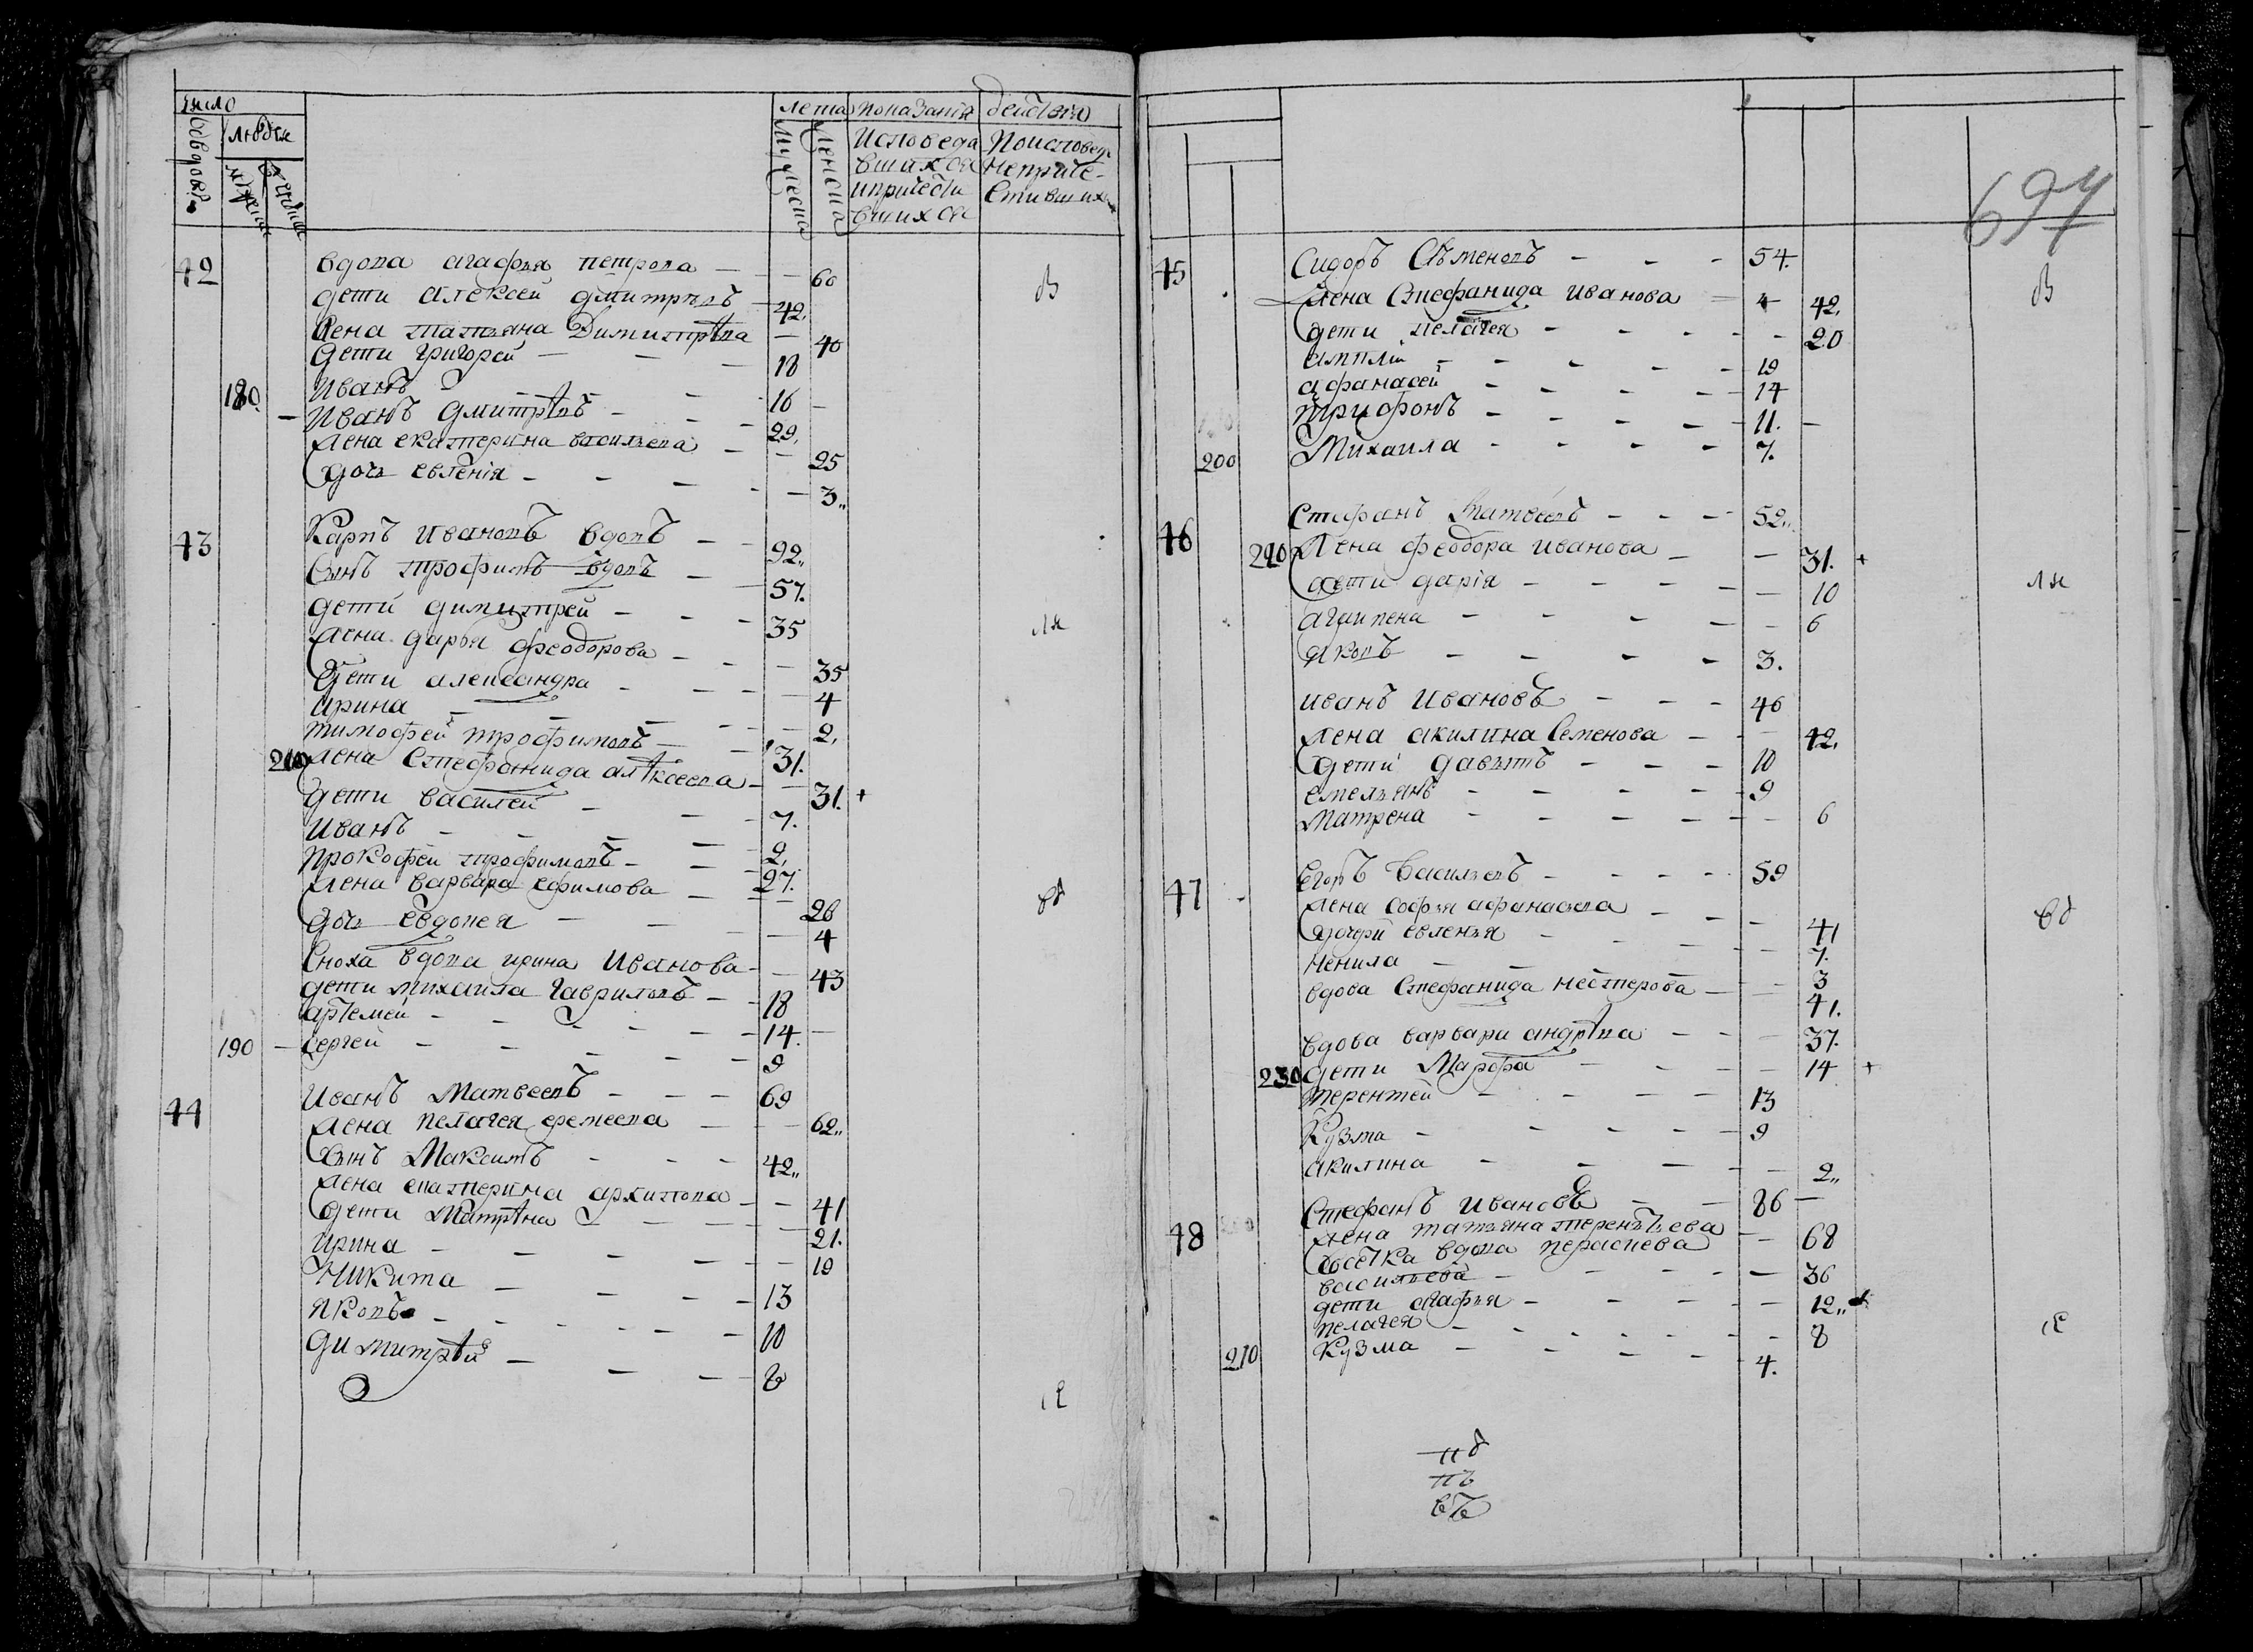 число
людей
лета показанiя действiя
Исповеда Поисповед
вшихся Неприче-
ипричести стившихся
вшихся
42 вдова агафья петрова — — 60
дети алексей дмитревъ — 42.
жена татьяна Димитрѣва — 40
дети григорей — — — 18
180. Иванъ — — — 16 —
Иванъ дмитрѣвъ — — 29.
жена екатерина васильева — — 25
дочь евгенiя — — — — 3.,
43 Карпъ Ивановъ вдовъ — — 92.,
сынъ трофимъ вдовъ — 57.
дети димитрей — — — 35
жена дарья феодорова — — — 35
дети александра — — — 4
ирина — — — — 2.
тимофей трофимовъ — — 31.
210 жена Стефанида алѣксеева — — 31. +
дети василей — — — 7.
Иванъ — — — 2.
прокофей трофимовъ — — 27.
жена варвара ефимова — — 26
дочь евдокея — — — 4
сноха вдова ирина Иванова — — 43
дети михаила гавриловъ — — 18
артемей — — — — 14. —
190 — сергей — — — — 9
44 Иванъ Матвеевъ — — — 69
жена пелагея еремеева — — 62.,
сынъ Максимъ — — — 42.,
жена екатерина архипова — — 41
дети Матрѣна — — — 21.
ирина — — — — 19
Никита — — — — 13
яковъ — — — — 10
димитрѣй — — — 8
697
45 Сидоръ Сѣменовъ — — — 54.
жена Стефанида иванова — 42.
дети пелагея — — — 20
19
афанасей — — — — 14
трифонъ — — — — 11. —
200 Михаила — — — — 7.
46 Стефанъ Матвеевъ — — — 52.,
220 жена феодора иванова — — 31. +
дети дарiя — — — — 10
агрипена — — — — 6
яковъ — — — — 3.
иванъ Ивановъ — — — 46
жена акилина семенова — — 42.
дети давытъ — — — 10
емельянъ — — — — 9
Матрена — — — — 6
47 Егоръ васильевъ — — — 59
жена софья афанасева — — — 41
дочери евгенья — — — 7.
Ненила — — — 3
вдова Стефанида нестерова — — 41.
вдова варвара андрѣва — — — 37.
230 дети Марфа — — — 14 +
терентей — — — — 13
Кузма — — — — 9
акилина — — — — 2.,
48 Стефанъ Ивановъ — — 86 —
жена татьяна терентьева — — 68
вдова
васильева — — — — 36
дети агафья — — — 12.,
пелагея — — — — 8
210 Кузма — — — — 4.